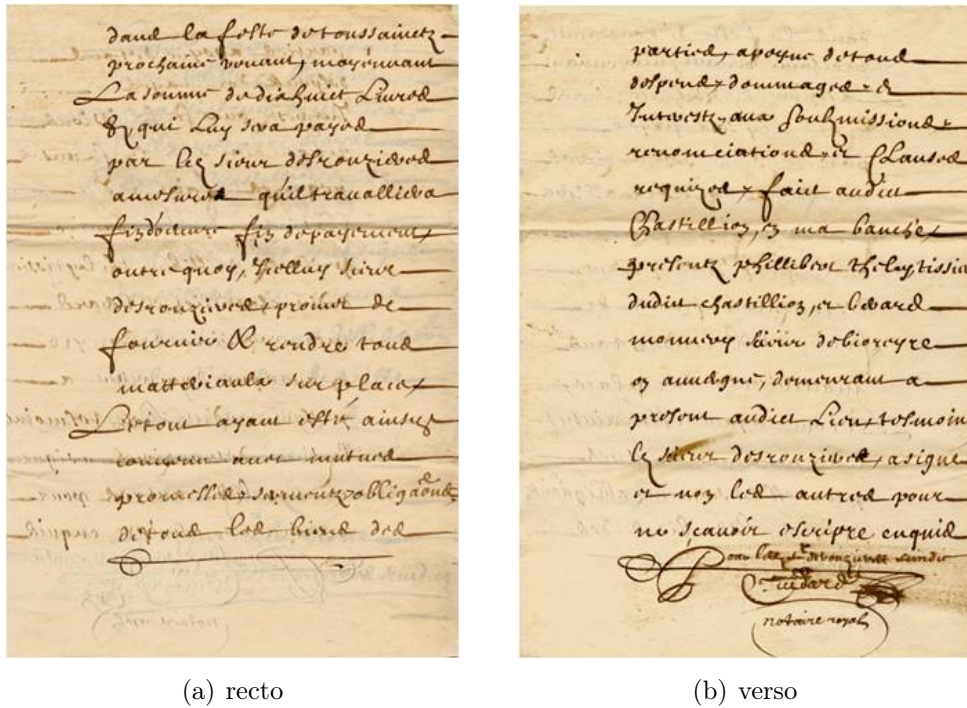 dans la feste de toussainctz
prochaine venant, moyennant
La somme de dixhuict Livres
qui Luy sera payee
par le sieur desronzieres
amesure quil travalliera
fin doeuvre fin de payement,
oultre quoy, Icelluy sieur
desronzieres promet de
fournir & rendre tous
matteriaulx sur place,
Le tout ayant esté ainsy
convenu avec mutues
promesses, sermentz, obliga͠ons
de tous les biens des
parties, a poyne de tous
despens, dommages &
Interestz, aux soubzmissions,
renonciations, et Clauses
requizes, faict audict
Chastillion, en ma banche,
presentz phillibert thelay, tissie
dudict chastillion, et
sieur de
en auvegne, demeurant a
present audict Lieu, tesmoin
le sieur desronzieres, a signé
et non les autres pour
ne sçavoir escripre enquis
Pour
notaire royal
(a) recto
(b) verso